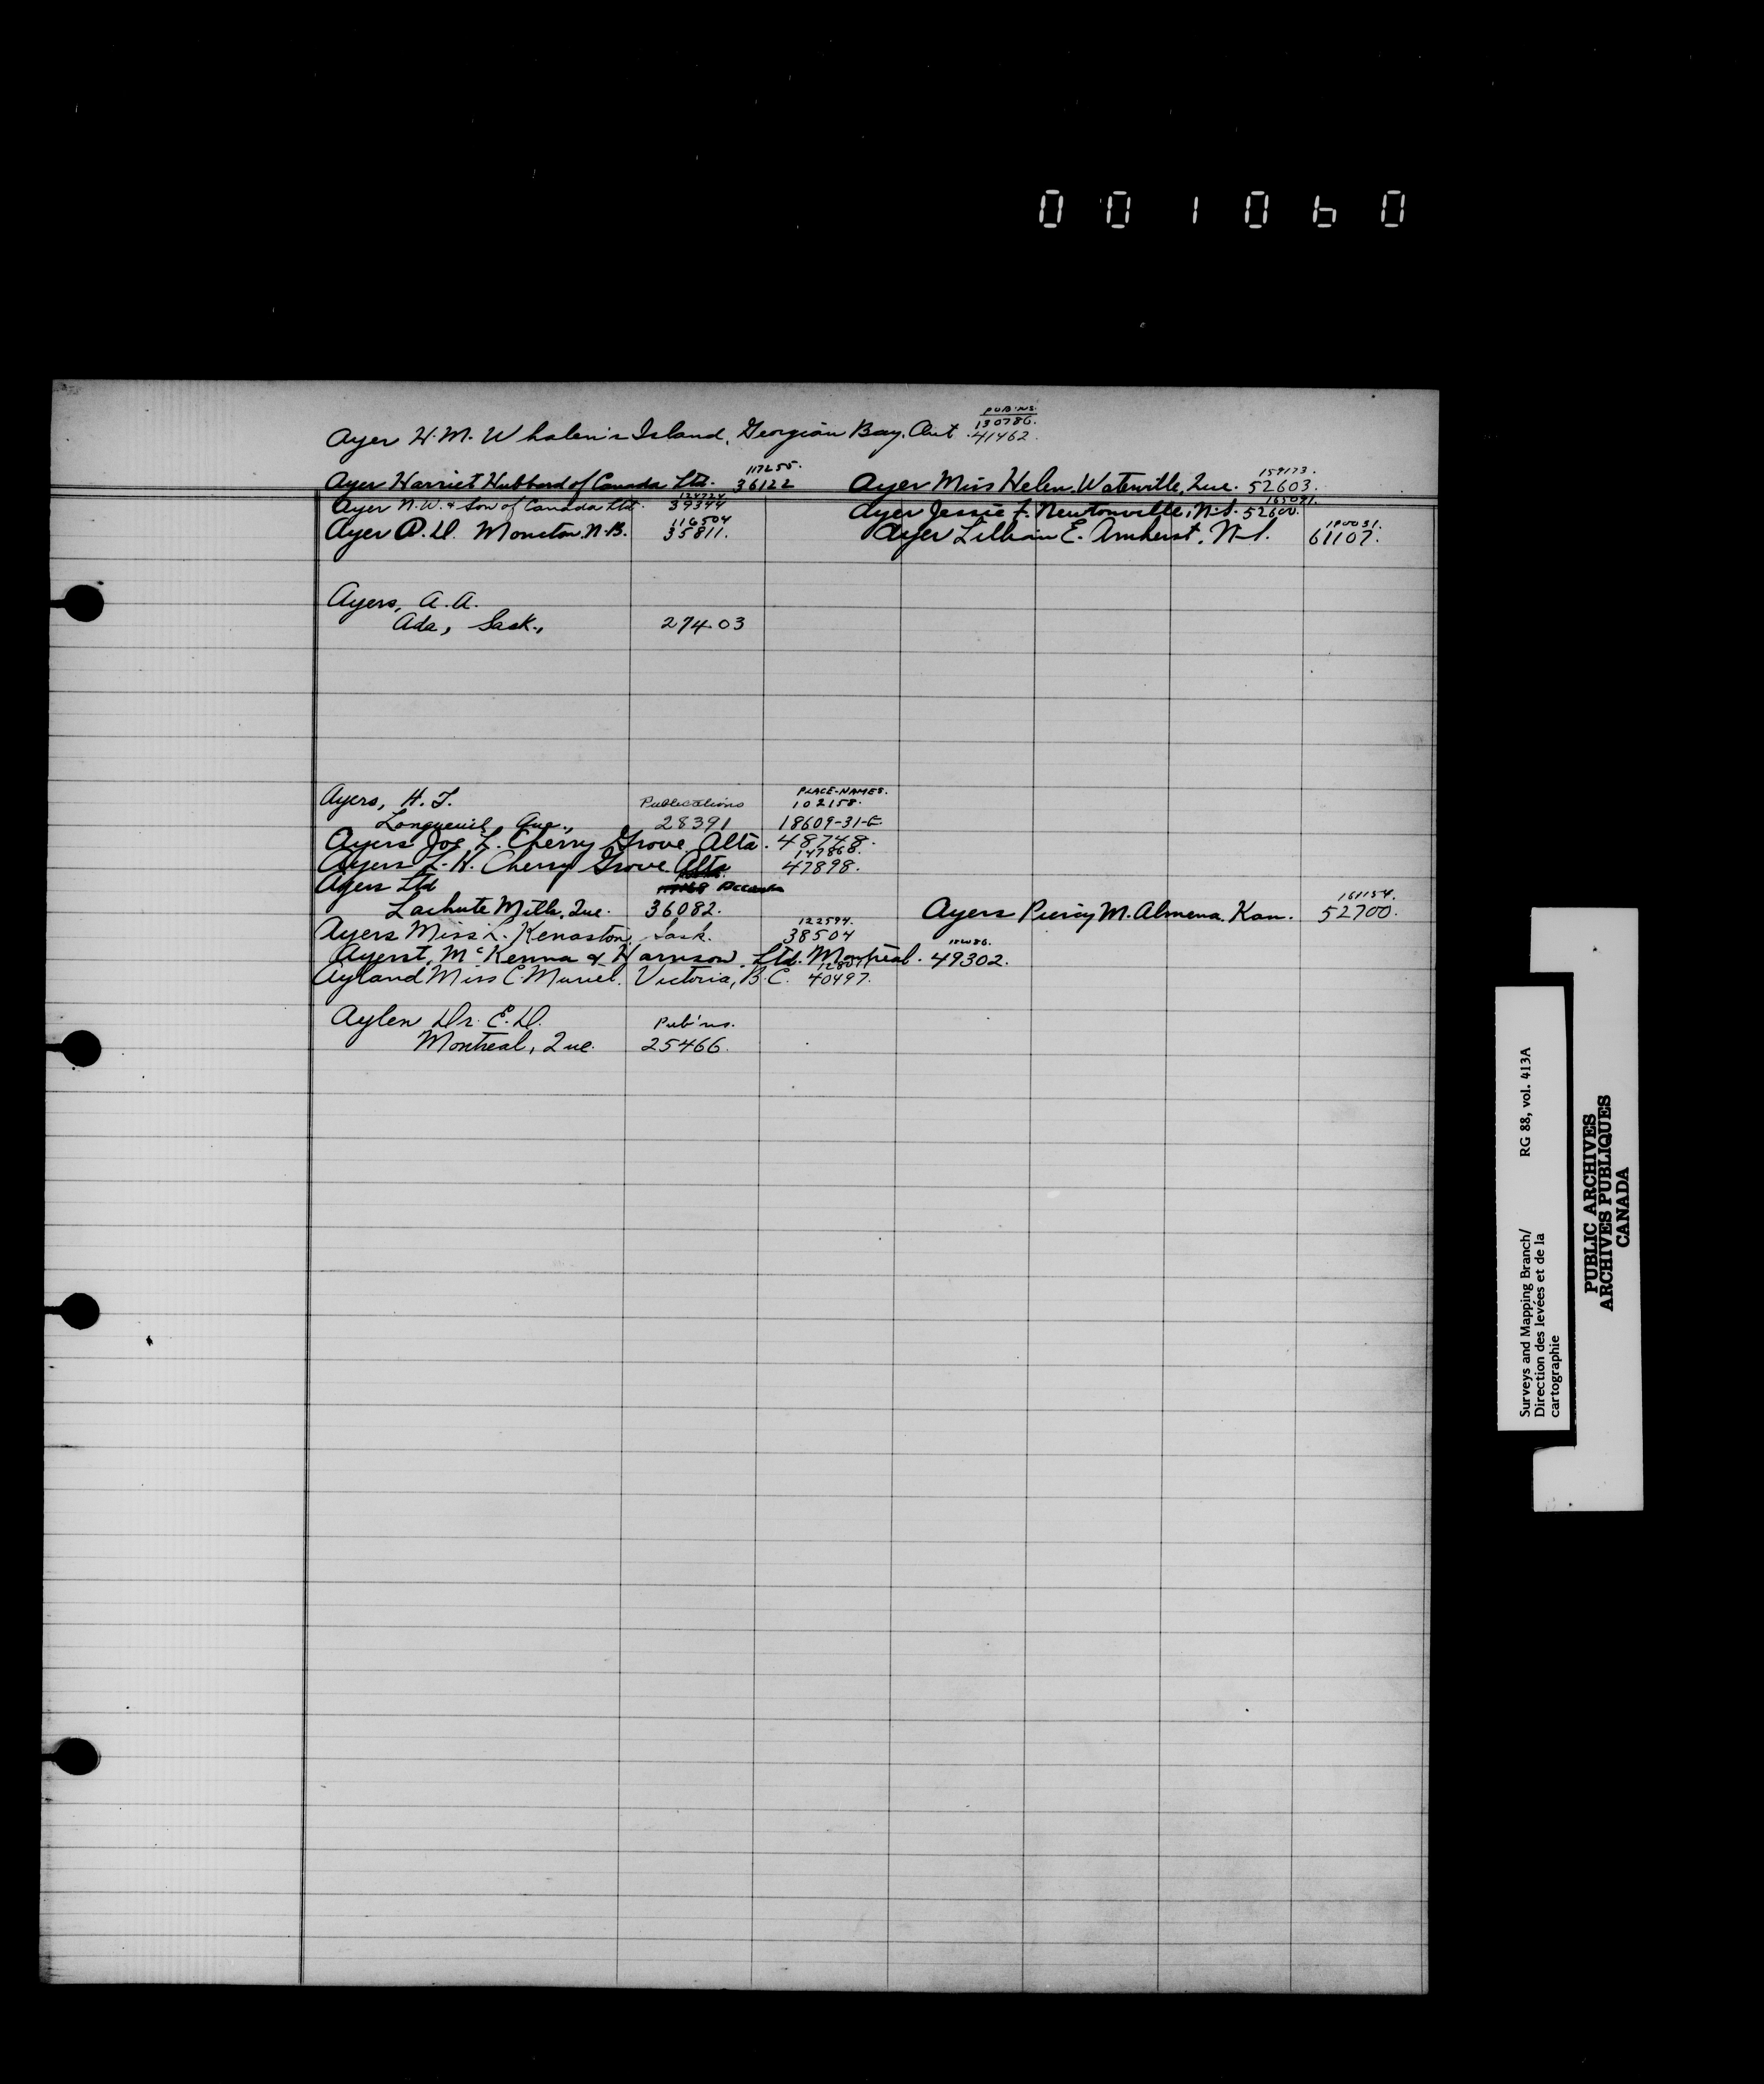 001060
PUB'NS.
130786.
Ayer H.M. Whalen's Island, Georgian Bay, Ont. 41462.
117255.
Ayer Harriet Hubbard of Canada Ltd. 36122
159173.
Ayer Miss Helen. Waterville, Que. 52603.
124724
Ayer N.W. & Son of Canada Ltd. 39344
165091.
Ayer Jessie F. Newtonville, N.S. 52600.
116504
Ayer A.D. Moncton, N.B. 35811.
190031.
Ayer Lillian E. Amherst, N.S. 61107.
Ayers, A.A.
Ada, Sask., 27403
PLACE-NAMES.
Ayers, H.T. Publications 102158.
Longueuil, Que., 28391 18609-31-E
Ayers Joe L. Cherry Grove, Alta. 48748.
147868.
Ayers L.H. Cherry Grove Alta 47898.
Ayers Ltd
Lachute Mills, Que. 36082.
161154.
Ayers Percy M. Almena, Kan. 52700.
122594.
Ayers Miss L. Kenaston, Sask. 38504
Ayerst, McKenna & Harrison, Ltd. Montreal. 49302.
Ayland Miss C. Muriel. Victoria, B.C. 40497.
Aylen Dr. E.D. Pub'ns.
Montreal, Que. 25466.
Surveys and Mapping Branch/ RG 88, vol. 413A
Direction des levées et de la
cartographie
PUBLIC ARCHIVES
ARCHIVES PUBLIQUES
CANADA